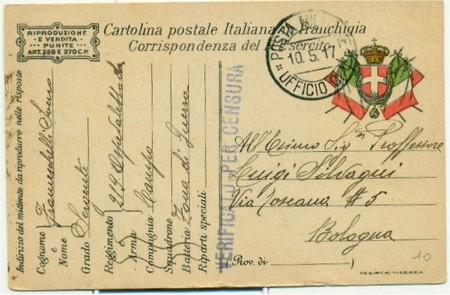 RIPRODUZIONE
E VENDITA
PUNITE
ART. 268 E 270 C.P.
Cartolina postale Italiana in franchigia
Corrispondenza del R. Esercito
POSTA MILITARE
10.5.17
UFFICIO
VERIFICATO PER CENSURA
Indirizzo del mittente da riprodurre nelle risposte
Cognome
e
Nome
Grado Sergente
Reggimento 214
Arma
Compagnia Campo
Squadrone
Batteria Zona di Guerra
Riparti speciali
All' Sig Proffessore
Luigi Silvagni
Via Toscana # 5
Bologna
(Prov. di )
10